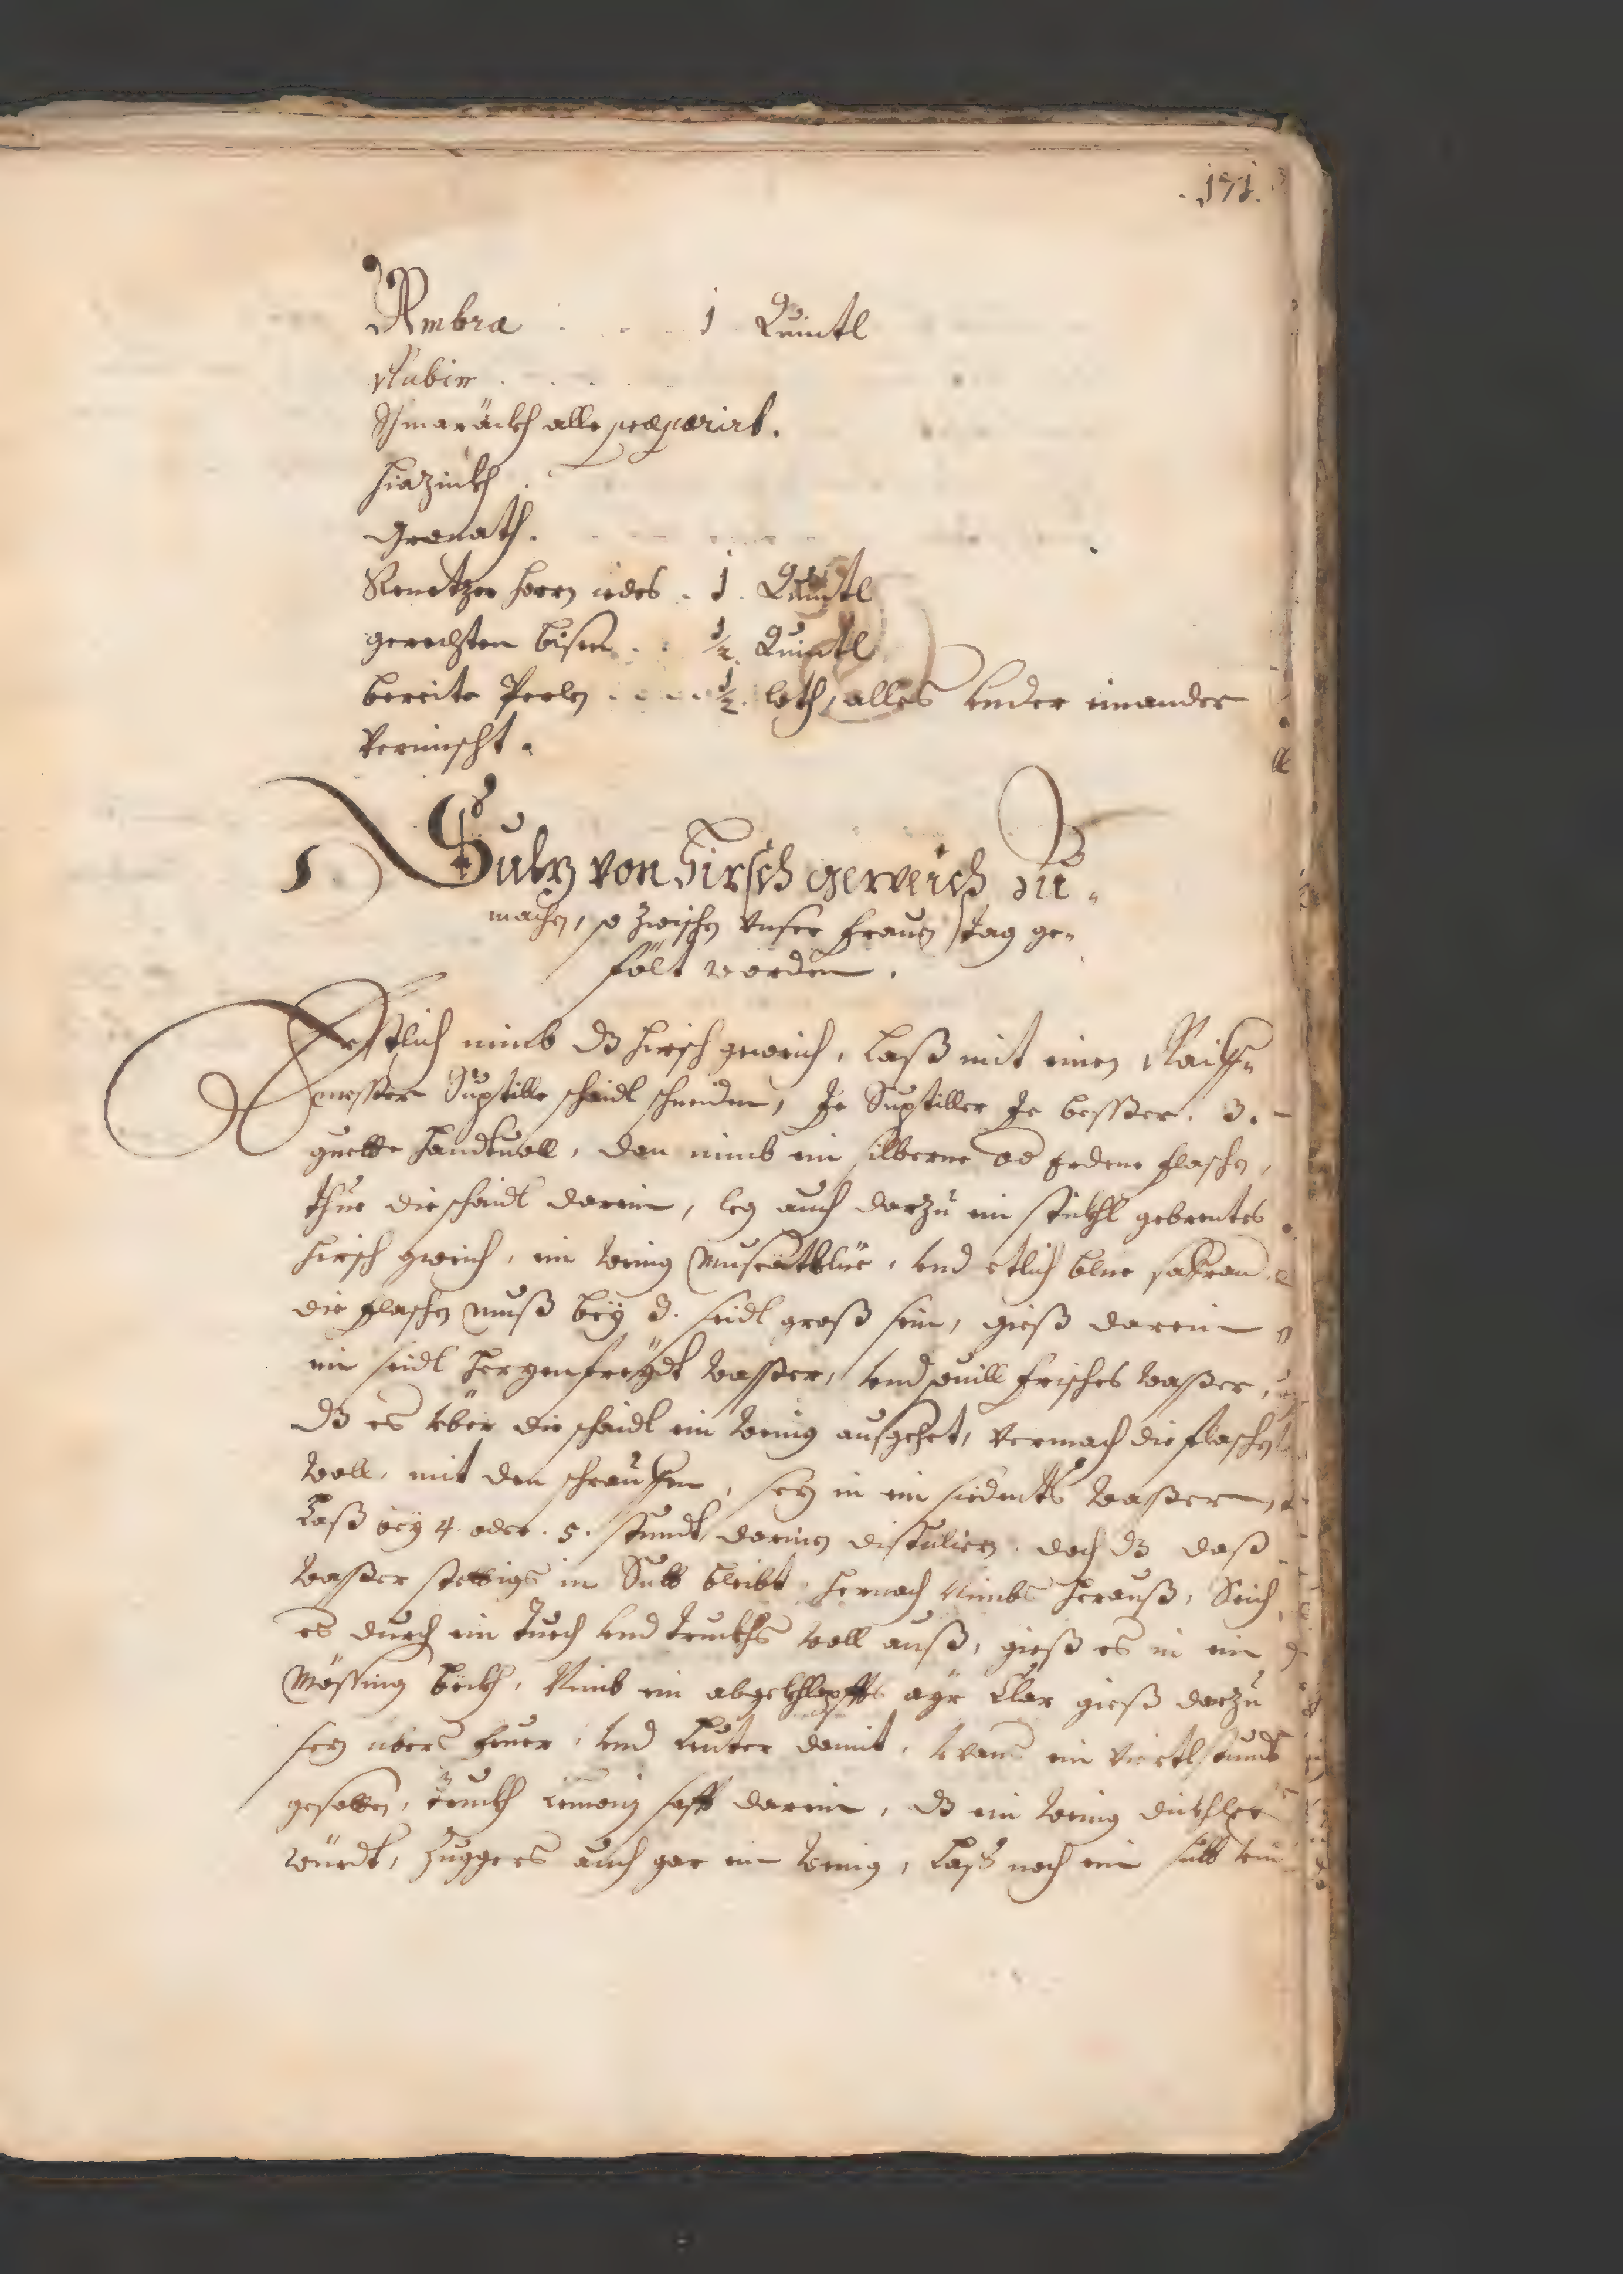 . 171.
Ambra . . . 1 Quintl
Rubin . . . .
Schmaräckh alle præparirt.
Hiazinth .
Granath. . . .
Venetzer Horn iedes . 1 . Quintl
gerechten bism . . ½ Quintl
bereite Perlen . . . . ½ loth, alles under einander
Vermischt.
1. Sulz von Hirsch geweich zu
machen, so zwischen Unser Frauen tag ge
fölt worden.
Erstlich nimb dz Hirsch geweich, laß mit einen Raiff
messer Suptille schaidl schneiden, Je Suptiller Je besser. 3.
guette Handtvoll, dan nimb ein silberne od Erdene flaschen,
thue die schaidl darein, leg auch darzu ein stückhl gebrentes
Hirsch gweich, ein wenig Muscatblüe, und etlich blue saffran
die flaschen muß bey 3. seidl groß sein, gieß darein
ein seidl Herzenfreydt wasser, und souill frisches wasser,
dz es über die schaidl ein wenig ausgehet, vermach die flaschen
woll, mit den schrauffen, sez in ein siedents wasser,
Laß bey 4. oder . 5. stundt darinen distulieren. doch dz daß
wasser stettigs in Sutt bleibt, hernach Nimbs herauß, Seich
es durch ein tuech und truckhs woll auß, gieß es in ein
Mössingböckh, Nimb ein abgekhlopffts ayr Clar gieß darzu
sez übers feuer, und leuter damit, wans ein viertlstundt
gesotten, truckh Lemoni safft darein, dz ein wenig dickhlet
würdt, Zugger es auch gar ein wenig, laß noch ein sutt